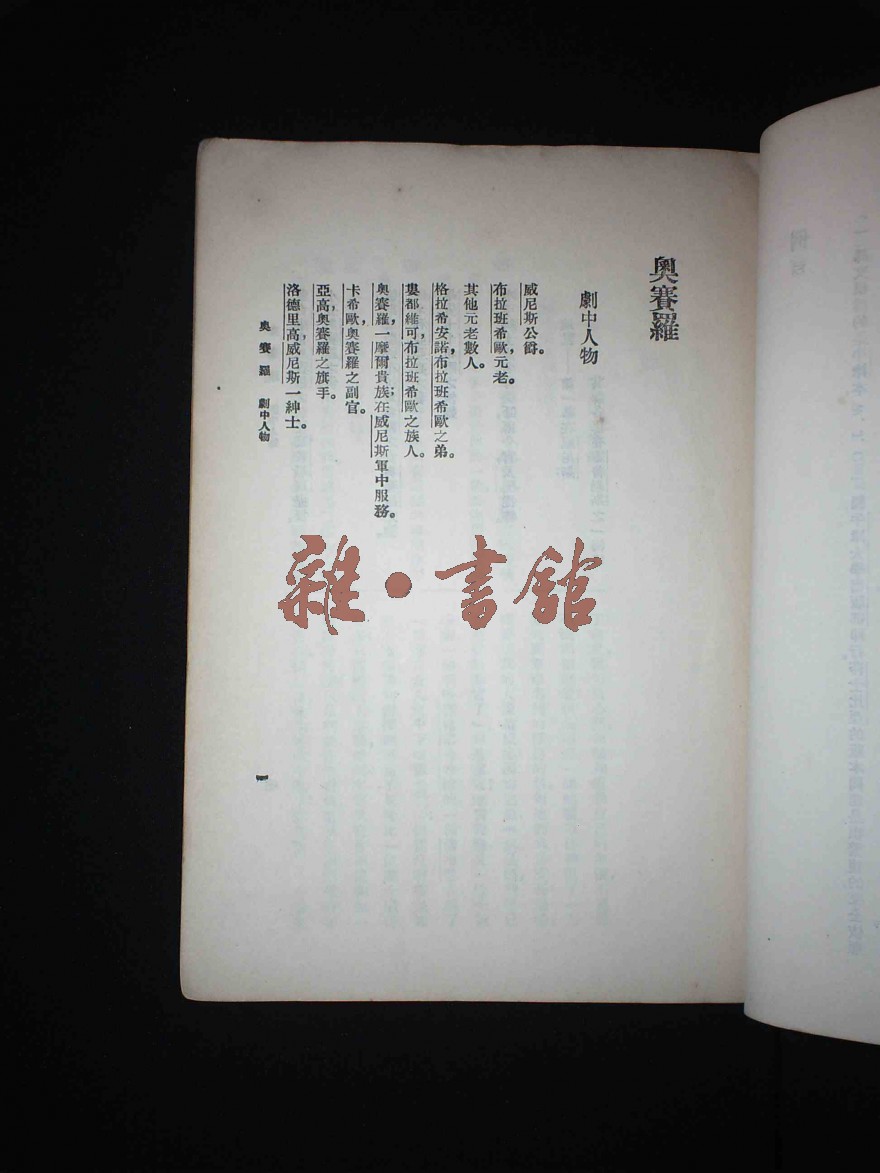 奧賽羅
劇中人物
威尼斯公爵。
布拉班希歐,元老。
其他元老數人。
格拉希安諾,布拉班希歐之弟。
婁都維可,布拉班希歐之族人。
奧賽羅,一摩爾貴族;在威尼斯軍中服務。
卡希歐,奧賽羅之副官。
亞高,奧賽羅之旗手。
洛德里高,威尼斯一紳士。
奧賽羅 劇中人物
一
雜·書館